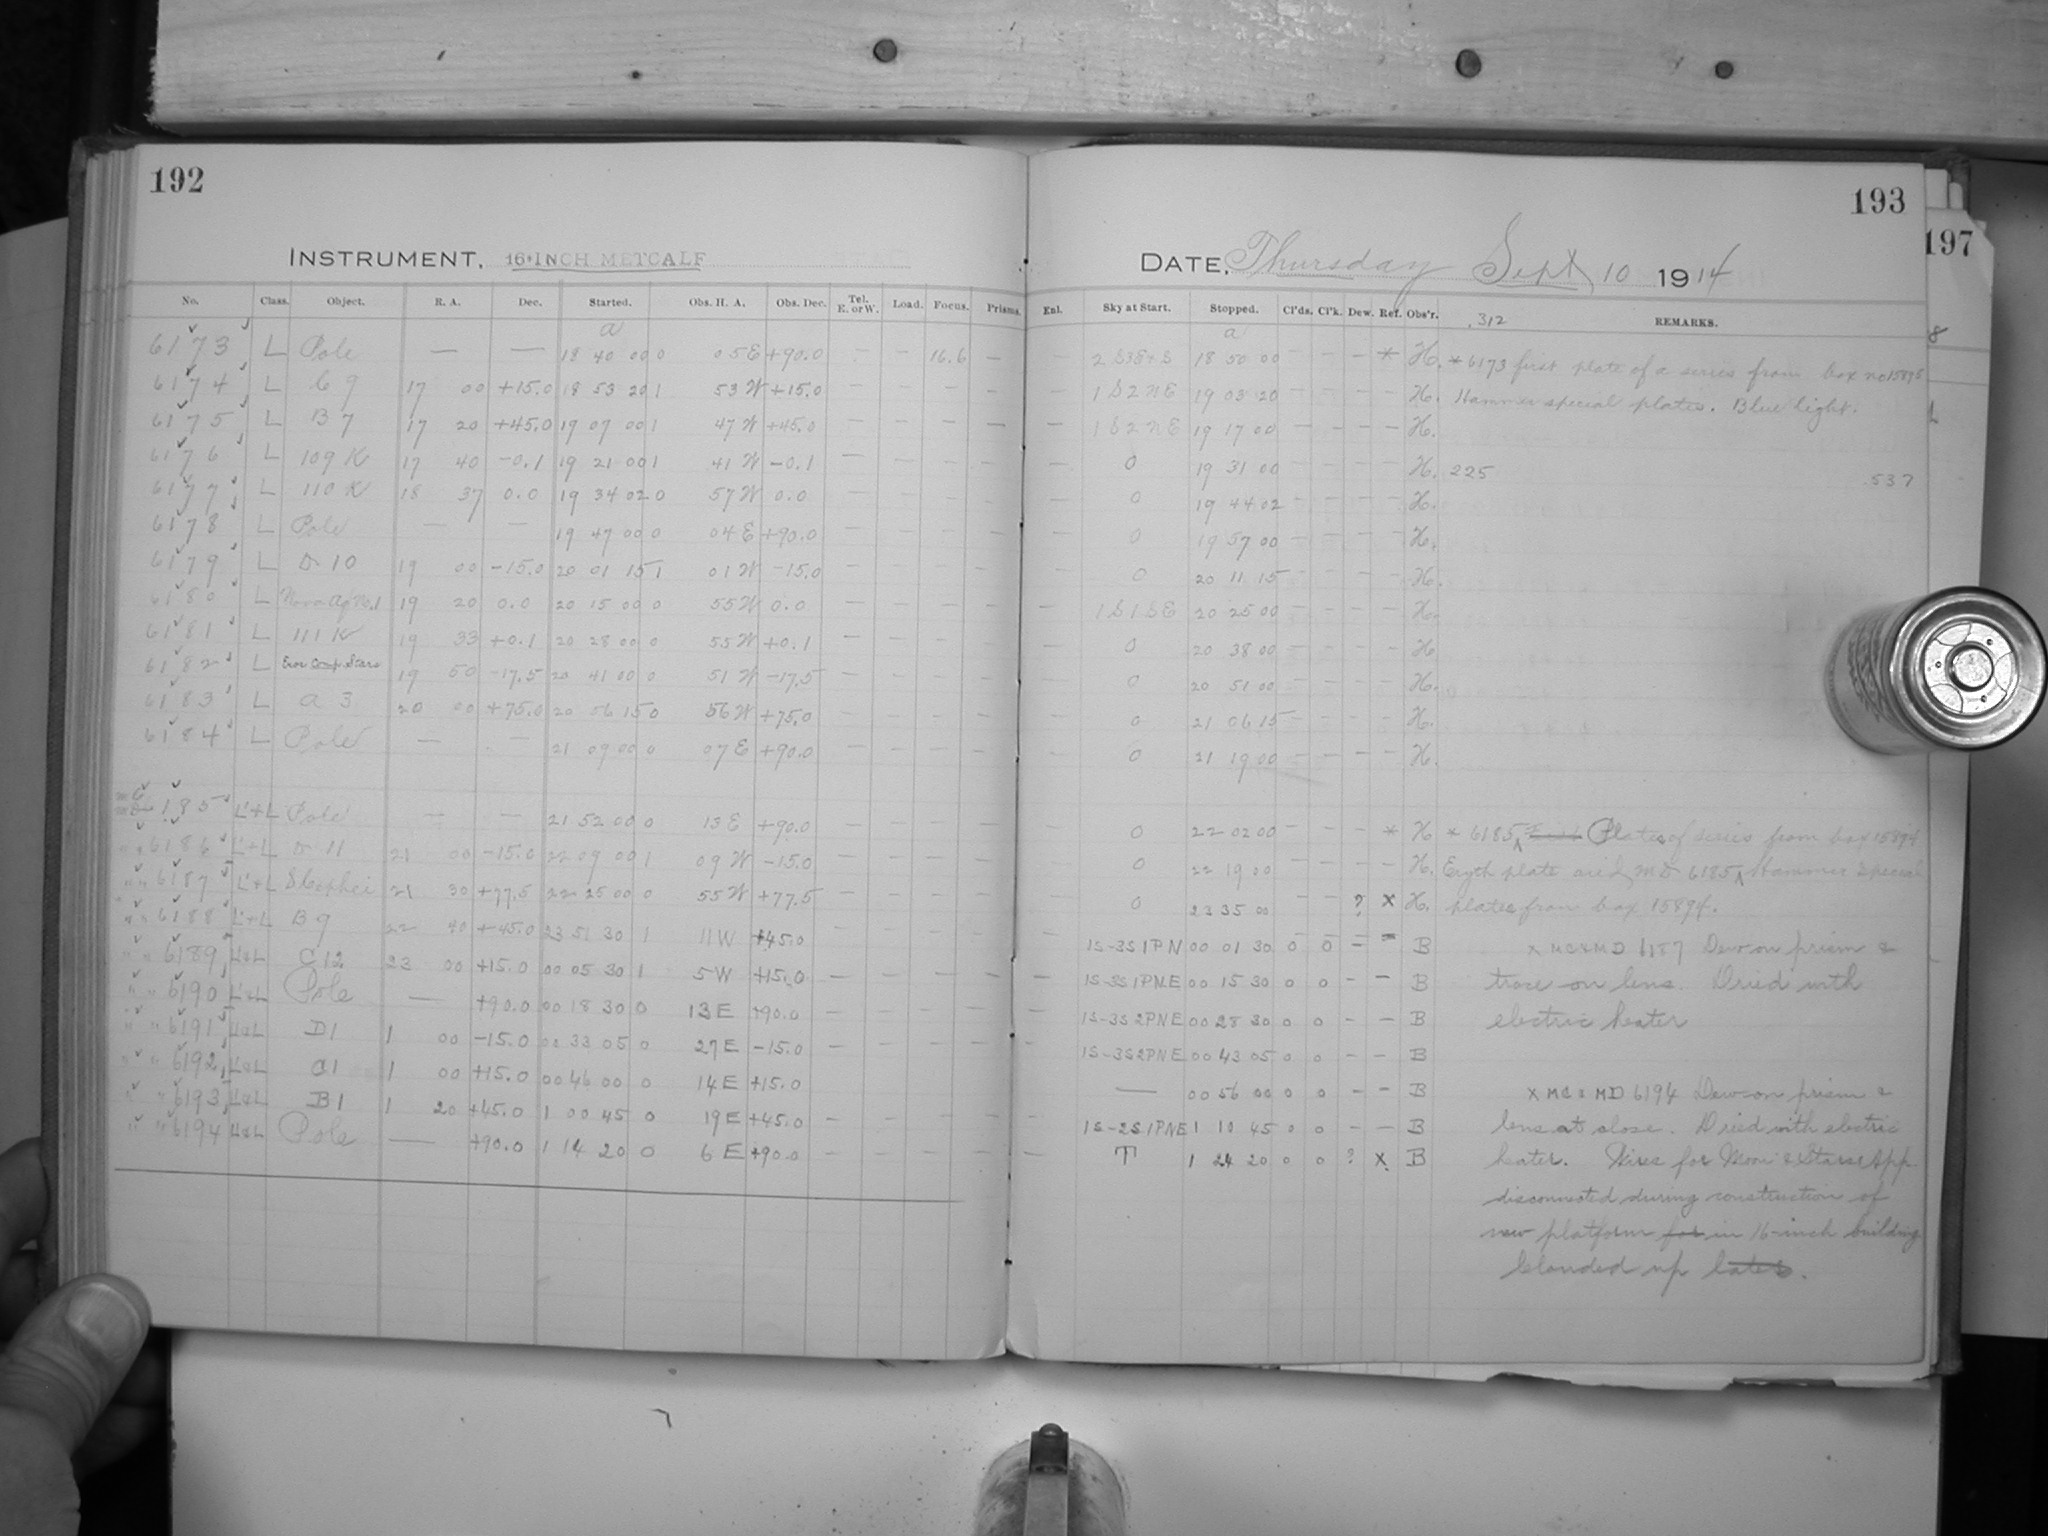 192
193
197
INSTRUMENT, 16-INCH METCALF
DATE, Thursday Sept 10 1914
No. Class. Object. R. A. Dec. Started. Obs. H. A. Obs. Dec. Tel. E. or W. Load. Focus. Prisms. Enl. Sky at Start. Stopped. Cl'ds. Cl'k. Dew. Ref. Obs'r. .312 REMARKS.
a a
6173 L Pole — — 18 40 00 0 05 E +90.0 - - 16.6 — — 2 S38+S 18 50 00 - - - * H. * 6173 first plate of a series from box no 15895
6174 L C 9 17 00 +15.0 18 53 20 1 53 W +15.0 — — — — — 1 S 2 N E 19 03 20 - - - - H. Hammer special plates. Blue light.
6175 L B 7 17 20 +45.0 19 07 00 1 47 W +45.0 — — — — — 1 S 2 N E 19 17 00 - - - - H.
6176 L 109 K 17 40 -0.1 19 21 00 1 41 W -0.1 — — — — — 0 19 31 00 - - - - H. 225 .537
6177 L 110 K 18 37 0.0 19 34 02 0 57 W 0.0 — — — — — 0 19 44 02 - - - - H.
6178 L Pole — — 19 47 00 0 04 E +90.0 — — — — — 0 19 57 00 - - - - H.
6179 L D 10 19 00 -15.0 20 01 15 1 01 W -15.0 — — — — — 0 20 11 15 - - - - H.
6180 L Nova Aql No.1 19 20 0.0 20 15 00 0 55 W 0.0 — — — — — 1 S 1 S E 20 25 00 - - - - H.
6181 L 111 K 19 33 +0.1 20 28 00 0 55 W +0.1 — — — — — 0 20 38 00 - - - - H
6182 L Eros Comp. Stars 19 50 -17.5 20 41 00 0 51 W -17.5 — — — — — 0 20 51 00 - - - - H.
6183 L A 3 20 00 +75.0 20 56 15 0 56 W +75.0 — — — — — 0 21 06 15 - - - - H.
6184 L Pole — — 21 09 00 0 07 E +90.0 — — — — — 0 21 19 00 - - - - H.
6185 L'+L Pole — — 21 52 00 0 13 E +90.0 — — — — — 0 22 02 00 - - - * H * 6185 Plates of series from box 15894
" " 6186 L'+L D 11 21 00 -15.0 22 09 00 1 09 W -15.0 — — — — — 0 22 19 00 - - - - H. Eryth plate and MD 6185 Hammer Special
" " 6187 L'+L S Cephei 21 30 +77.5 22 25 00 0 55 W +77.5 — — — — — 0 23 35 00 - - ? X H. plates from box 15894.
" " 6188 L'+L B 9 22 40 +45.0 23 51 30 1 11 W +45.0 — — — — — 1S-3S 1PN 00 01 30 0 0 - - B X MC & MD 6187 Dew on prism &
" " 6189 L'&L C 12 23 00 +15.0 00 05 30 1 5 W +15.0 — — — — — 1S-3S 1PNE 00 15 30 0 0 - - B trace on lens. Dried with
" " 6190 L'&L Pole — +90.0 00 18 30 0 13 E +90.0 — — — — — 1S-3S 2PNE 00 28 30 0 0 - - B electric heater
" " 6191 L'&L D1 1 00 -15.0 00 33 05 0 27 E -15.0 — — — — — 1S-3S 2PNE 00 43 05 0 0 - - B
" " 6192 L'&L C1 1 00 +15.0 00 46 00 0 14 E +15.0 — 00 56 00 0 0 - - B X MC & MD 6194 Dew on prism &
" " 6193 L'&L B1 1 20 +45.0 1 00 45 0 19 E +45.0 — — — — — 1S-2S 1PNE 1 10 45 0 0 - - B lens at close. Dried with electric
" " 6194 L'&L Pole — +90.0 1 14 20 0 6 E +90.0 — — — — — T 1 24 20 0 0 ? X B heater. Wires for Moon & Stars App.
disconnected during construction of
new platform for in 16-inch building
Clouded up later.